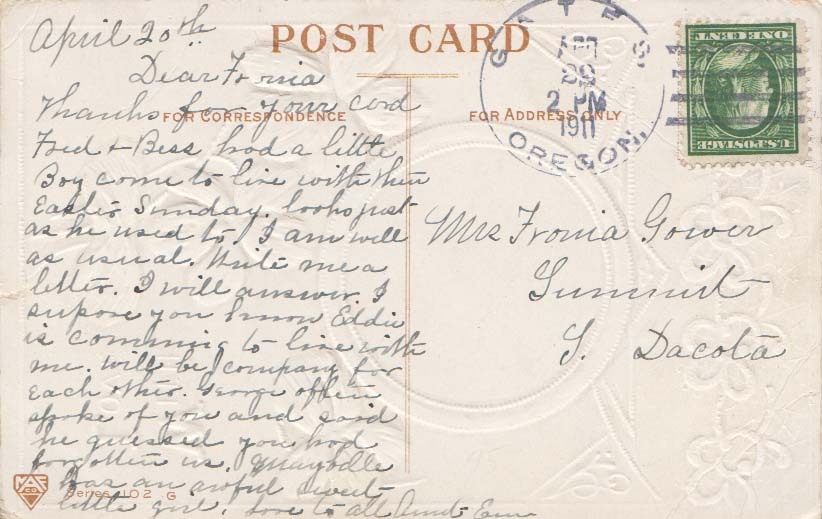 POST CARD
FOR CORRESPONDENCE
FOR ADDRESS ONLY
April 20th
Dear Fronia
Thanks for your card
Fred + Bess had a little
Boy come to live with them
Easter Sunday. looks just
as he used to. I am well
as usual. Write me a
letter. I will answer. I
supose you know Eddie
is comming to live with
me. will be company for
each other. George often
spoke of you and said
he guessed you had
forgotten us. Maybelle
has an awful sweet
little girl. Love to all Aunt Em
Series 102 G
GATES
APR
29
2 PM
1911
OREGON.
U.S. POSTAGE
ONE CENT
Mrs Fronia Gower
Summit
S. Dacota
95